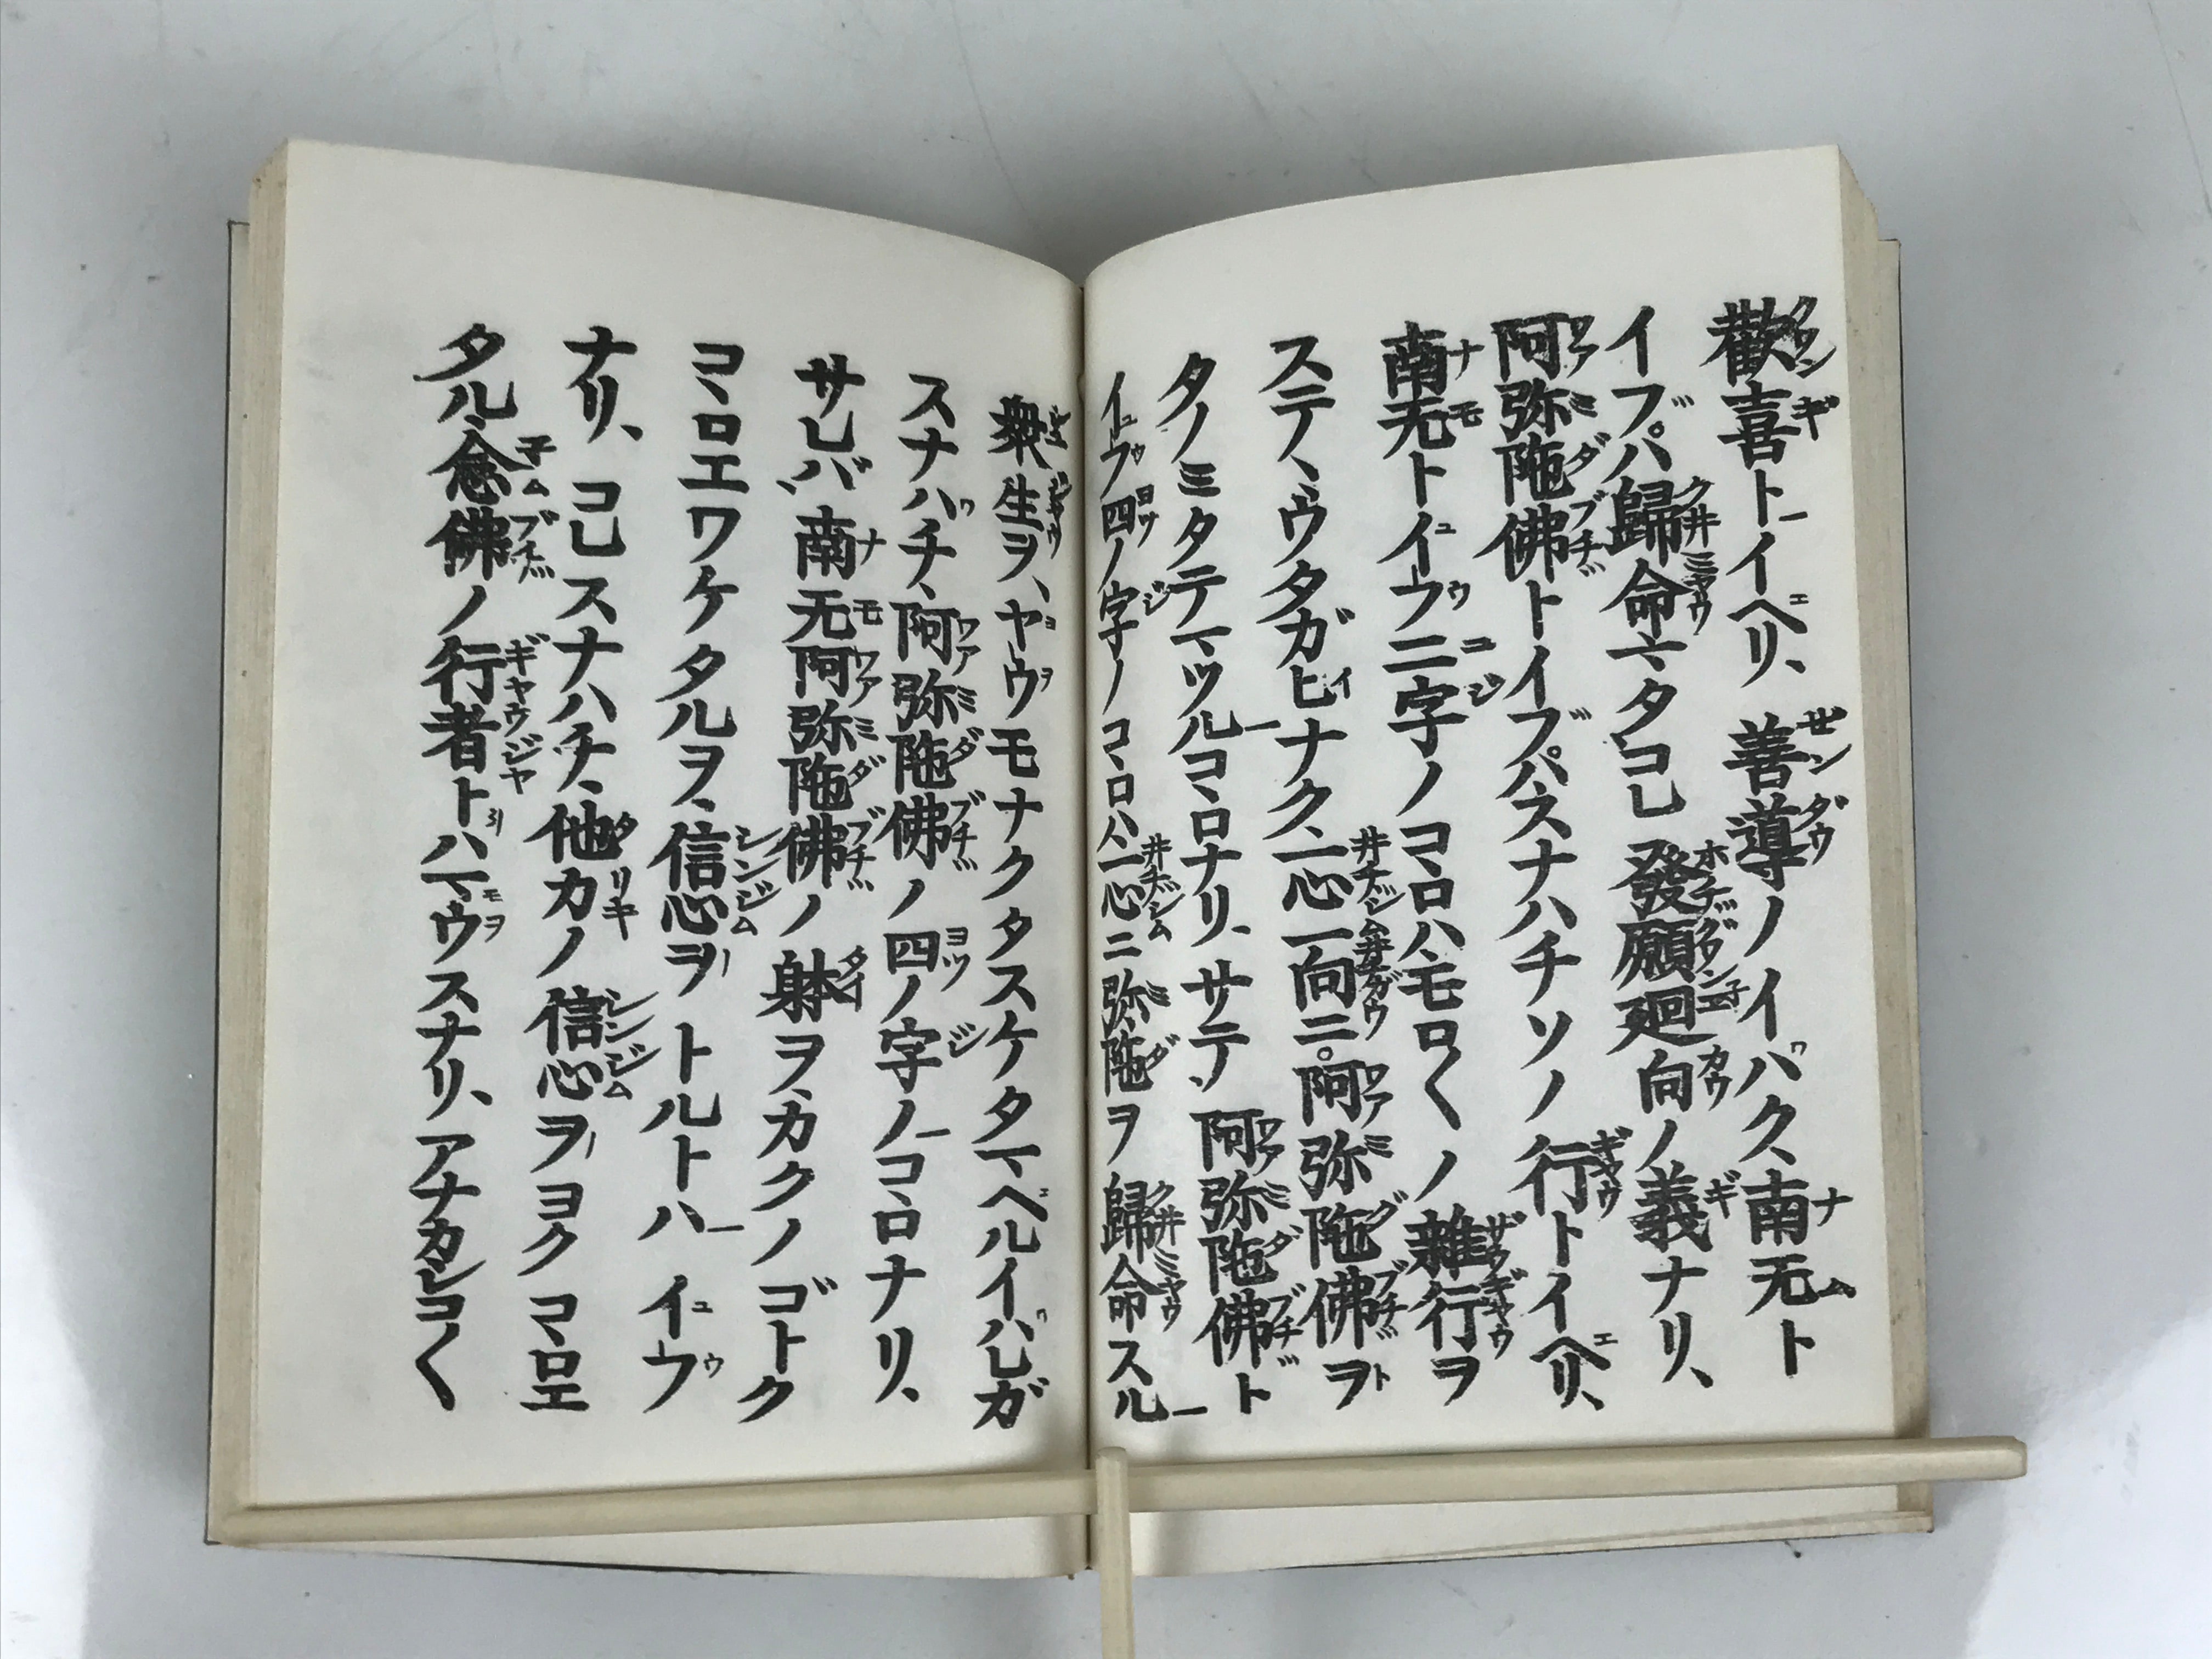 歡喜トイヘリ、善導ノイハク、南无ト
イフハ歸命マタコレ發願廻向ノ義ナリ、
阿弥陁佛トイフハスナハチソノ行トイヘリ、
南无トイフ二字ノコヽロハ、モロ〱ノ雜行ヲ
ステヽ、ウタガヒナク、一心一向ニ阿弥陁佛ヲ
タノミタテマツルコヽロナリ、サテ、阿弥陁佛ト
イフ四ノ字ノコヽロハ、一心ニ弥陁ヲ歸命スル
衆生ヲ、ヤウモナクタスケタマヘルイハレガ
スナハチ、阿弥陁佛ノ四ノ字ノコヽロナリ、
サレバ、南无阿弥陁佛ノ躰ヲ、カクノゴトク
コヽロエワケタルヲ、信心ヲトルトハイフ
ナリ、コレスナハチ、他力ノ信心ヲヨクコヽロエ
タル、念佛ノ行者トハマウスナリ、アナカシコ〱